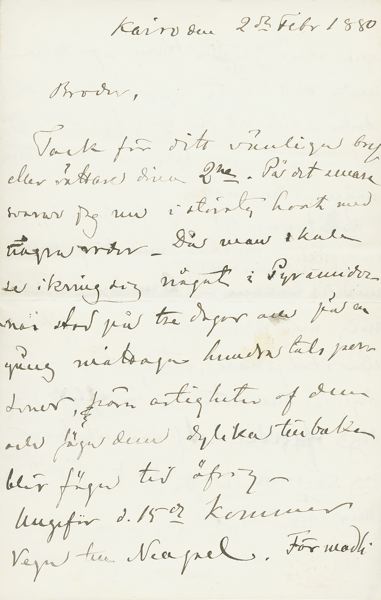 Kairo den 2dr Febr 1880
Broder,
Tack för ditt vänliga bref
eller rättare dina 2ne. På det senare
svarar jag nu i största hast med
några ord – Då man skall
se ikring sig något i Pyramider
når stad på tre dagar och på en
gång mottaga hundratals per-
soner, artigheter af dem
och säga dem dylika tillbaka
blir föga tid öfrig –
Ungefär d. 15de kommer
Vega till Neapel. Förmodli